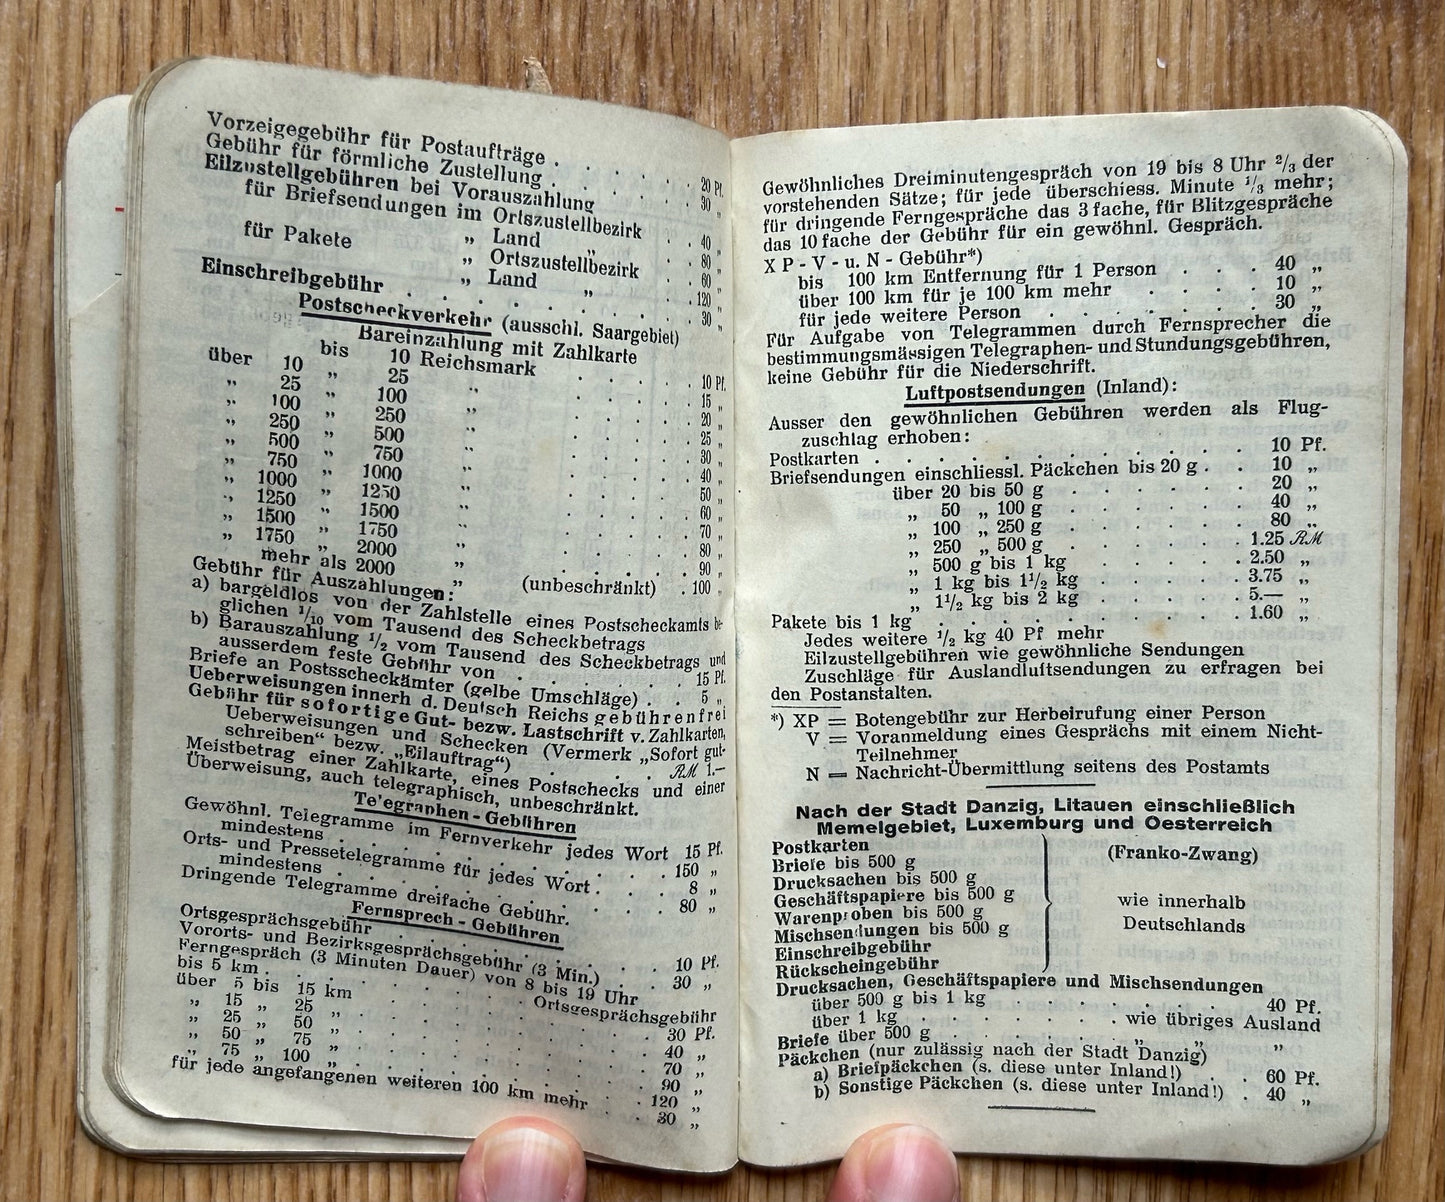 Vorzeigegebühr für Postaufträge . . . . . . 20 Pf.
Gebühr für förmliche Zustellung . . . . . . 30 „
Eilzustellgebühren bei Vorauszahlung
für Briefsendungen im Ortszustellbezirk . . 40 „
„ Land „ . . 80 „
für Pakete „ Ortszustellbezirk . . 60 „
„ Land „ . . 120 „
Einschreibgebühr . . . . . . . . 30 „
Postscheckverkehr (ausschl. Saargebiet)
Bareinzahlung mit Zahlkarte
bis 10 Reichsmark . . . . . 10 Pf.
über 10 „ 25 „ . . . . . 15 „
„ 25 „ 100 „ . . . . . 20 „
„ 100 „ 250 „ . . . . . 25 „
„ 250 „ 500 „ . . . . . 30 „
„ 500 „ 750 „ . . . . . 40 „
„ 750 „ 1000 „ . . . . . 50 „
„ 1000 „ 1250 „ . . . . . 60 „
„ 1250 „ 1500 „ . . . . . 70 „
„ 1500 „ 1750 „ . . . . . 80 „
„ 1750 „ 2000 „ . . . . . 90 „
mehr als 2000 „ (unbeschränkt) . 100 „
Gebühr für Auszahlungen:
a) bargeldlos von der Zahlstelle eines Postscheckamts be-
glichen 1/10 vom Tausend des Scheckbetrags
b) Barauszahlung 1/2 vom Tausend des Scheckbetrags und
ausserdem feste Gebühr von . . . . . . 15 Pf.
Briefe an Postsscheckämter (gelbe Umschläge) . . 5 „
Ueberweisungen innerh d. Deutsch Reichs gebührenfrei
Gebühr für sofortige Gut- bezw. Lastschrift v. Zahlkarten,
Ueberweisungen und Schecken (Vermerk „Sofort gut-
schreiben“ bezw. „Eilauftrag“) . . . . RM 1.—
Meistbetrag einer Zahlkarte, eines Postschecks und einer
Überweisung, auch telegraphisch, unbeschränkt.
Te'egraphen-Gebühren
Gewöhnl. Telegramme im Fernverkehr jedes Wort 15 Pf.
mindestens . . . . . . . . . . 150 „
Orts- und Pressetelegramme für jedes Wort . . . 8 „
mindestens . . . . . . . . . . 80 „
Dringende Telegramme dreifache Gebühr.
Fernsprech-Gebühren
Ortsgesprächsgebühr . . . . . . . . 10 Pf.
Vororts- und Bezirksgesprächsgebühr (3 Min.) . . 30 „
Ferngespräch (3 Minuten Dauer) von 8 bis 19 Uhr
bis 5 km . . . . . . . . Ortsgesprächsgebühr
über 5 bis 15 km . . . . . . . 30 Pf.
„ 15 „ 25 „ . . . . . . . 40 „
„ 25 „ 50 „ . . . . . . . 70 „
„ 50 „ 75 „ . . . . . . . 90 „
„ 75 „ 100 „ . . . . . . . 120 „
für jede angefangenen weiteren 100 km mehr . . 30 „
Gewöhnliches Dreiminutengespräch von 19 bis 8 Uhr 2/3 der
vorstehenden Sätze; für jede überschiess. Minute 1/3 mehr;
für dringende Ferngespräche das 3fache, für Blitzgespräche
das 10fache der Gebühr für ein gewöhnl. Gespräch.
XP-V-u. N-Gebühr*)
bis 100 km Entfernung für 1 Person . . . 40 „
über 100 km für je 100 km mehr . . . . 10 „
für jede weitere Person . . . . . . 30 „
Für Aufgabe von Telegrammen durch Fernsprecher die
bestimmungsmässigen Telegraphen- und Stundungsgebühren,
keine Gebühr für die Niederschrift.
Luftpostsendungen (Inland):
Ausser den gewöhnlichen Gebühren werden als Flug-
zuschlag erhoben:
Postkarten . . . . . . . . . . 10 Pf.
Briefsendungen einschliessl. Päckchen bis 20 g . . 10 „
über 20 bis 50 g . . . . . 20 „
„ 50 „ 100 g . . . . . 40 „
„ 100 „ 250 g . . . . . 80 „
„ 250 „ 500 g . . . . . 1.25 RM
„ 500 g bis 1 kg . . . . . 2.50 „
„ 1 kg bis 1 1/2 kg . . . . . 3.75 „
„ 1 1/2 kg bis 2 kg . . . . . 5.— „
Pakete bis 1 kg . . . . . . . . . 1.60 „
Jedes weitere 1/2 kg 40 Pf mehr
Eilzustellgebühren wie gewöhnliche Sendungen
Zuschläge für Auslandluftsendungen zu erfragen bei
den Postanstalten.
*) XP = Botengebühr zur Herbeirufung einer Person
V = Voranmeldung eines Gesprächs mit einem Nicht-
Teilnehmer
N = Nachricht-Übermittlung seitens des Postamts
Nach der Stadt Danzig, Litauen einschließlich
Memelgebiet, Luxemburg und Oesterreich
Postkarten
(Franko-Zwang)
Briefe bis 500 g
Drucksachen bis 500 g
Geschäftspapiere bis 500 g
wie innerhalb
Warenproben bis 500 g
Deutschlands
Mischsendungen bis 500 g
Einschreibgebühr
Rückscheingebühr
Drucksachen, Geschäftspapiere und Mischsendungen
über 500 g bis 1 kg . . . . . . . 40 Pf.
über 1 kg . . . . . . . wie übriges Ausland
Briefe über 500 g . . . . . . „ „ „
Päckchen (nur zulässig nach der Stadt Danzig)
a) Briefpäckchen (s. diese unter Inland!) . . 60 Pf.
b) Sonstige Päckchen (s. diese unter Inland!) . 40 „